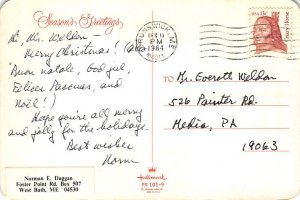 Season's Greetings
Dr. Mr. Weldon -
Merry Christmas! (Also
"Buon natale, God jul,
Felices Pascuas, and
Noël!)
Hope you're all merry
and jolly for the holidays.
Best wishes
Norm
Norman E. Duggan
Foster Point Rd. Box 507
West Bath, ME 04530
BRUNSWICK, ME
DEC 11
PM
1984
04011
USA 13c
Crazy Horse
To: Mr. Everett Weldon
526 Painter Rd.
Media, PA
19063
Hallmark
PX 101-9